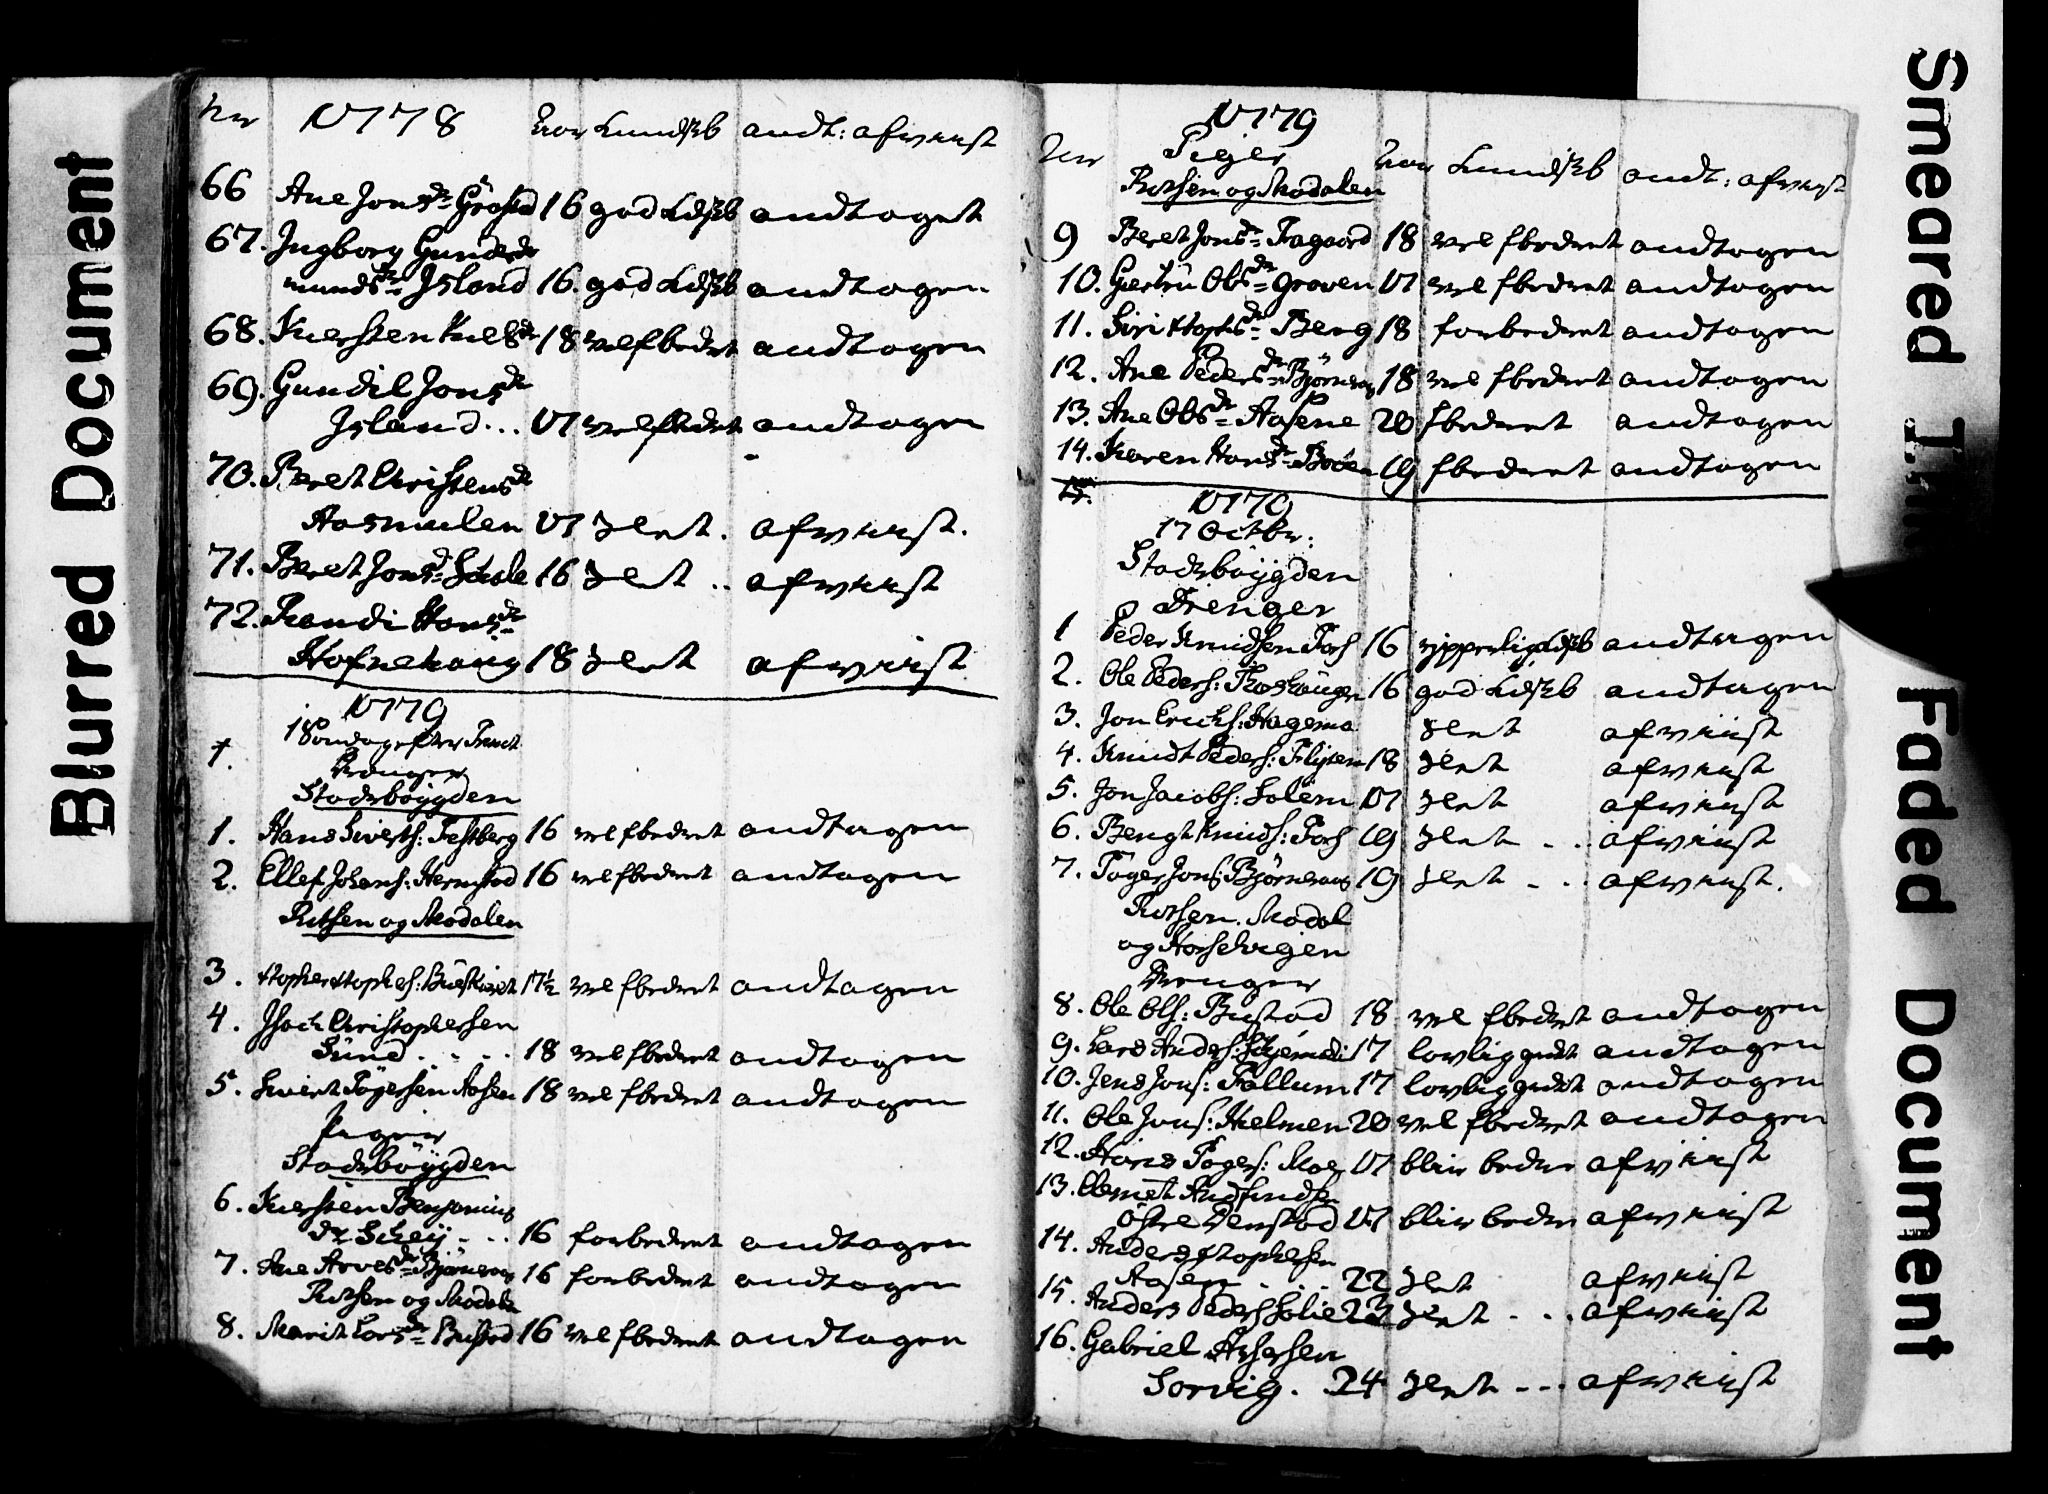 Blurred Document
Nr 1778 Aar Kundskb andt: afviist
66 Ane Jonsdr 16 god Kdskb andtaget
67. Ingborg Gunde
munds dr Island 16. god Kdskb andtagen
68. Kiersten 18 vel fbedret andtagen
69. Gundil Jonsdr
Island... 17 vel fbedret andtagen
70. Beret Christensdr
Aasmulen 17 slet. afviist.
71. Beret Jonsdr 16 slet .. afviist
72. Randi Hansdr
Hofnehaug 18 slet afviist
1779
1 Søndag efter Trinit
1. Drenger
Stadsbøygden
1. Hans Siverts: Testberg 16 vel fbedret andtagen
2. Ellef Johans: Hermstad 16 vel fbedret andtagen
Ritsen og Modalen
3. 17½ vel fbedret andtagen
4. Isach Christophersen
Sund . . . . 18 vel fbedret andtagen
5. Sivert Tøgersen Aasen 18 vel fbedret andtagen
Piger
Stadsbøygden
6. Kiersten Benjamins
dr Schey - . . 16 forbedret andtagen
7. Ane Arvesdr Bjørneraas 16 forbedret andtagen
Ritsen og Modalen
8. Marit Larsdr Bustad 16 vel fbedret andtagen
1779
Piger
Nr Aar Kundskb andt: afviist
Ritsen og Modalen
9 Beret Jonsdr Fagaard 18 vel fbedret andtagen
10. Giertru Olsdr Graven 17 vel fbedret andtagen
11. Siri Berg 18 forbedret andtagen
12. Ane Pedersdr Bjørneraas 18 vel fbedret andtagen
13. Ane Olsdr Aasene 20 fbedret andtagen
14. Karen Hansdr 19 fbedret andtagen
1779
17 Octbr:
Stadsbøygden
Drenger
1 Peder Knudsen 16 ypperlig Kdskb andtagen
2. Ole Peders: 16 god Kdskb andtagen
3. Jon Erichs: Hagemo slet afviist
4. Knudt Peders: Flyten 18 slet afviist
5. Jon Jacobs: Solem 17 slet afviist
6. Bengt Knuds: 19 slet - . . afviist
7. Tøger Jons: Bjørneraas 19 slet - . . afviist.
Ritsen. Modal
og Hasselvigen
Drenger
8. Ole Ols: Bustad 18 vel fbedret andtagen
9. Lars Anders: 17 lovlig godt andtagen
10. Jens Jons: Fallum 17 lovlig godt andtagen
11. Ole Jons: Hielmen 20 vel fbedret andtagen
12. Hans Tøgers: Moen 17 bliv bedre afviist
13. Clemet Andfindsen
Østre Denstad 17 bliv bedre afviist
14. Anders
Aasen . . . . 22 slet afviist
15. Anders Peders Solie 23 slet - . . afviist
16. Gabriel Assersen
Sorvig. 24 slet - - - afviist
Smeared Ink
Faded Document